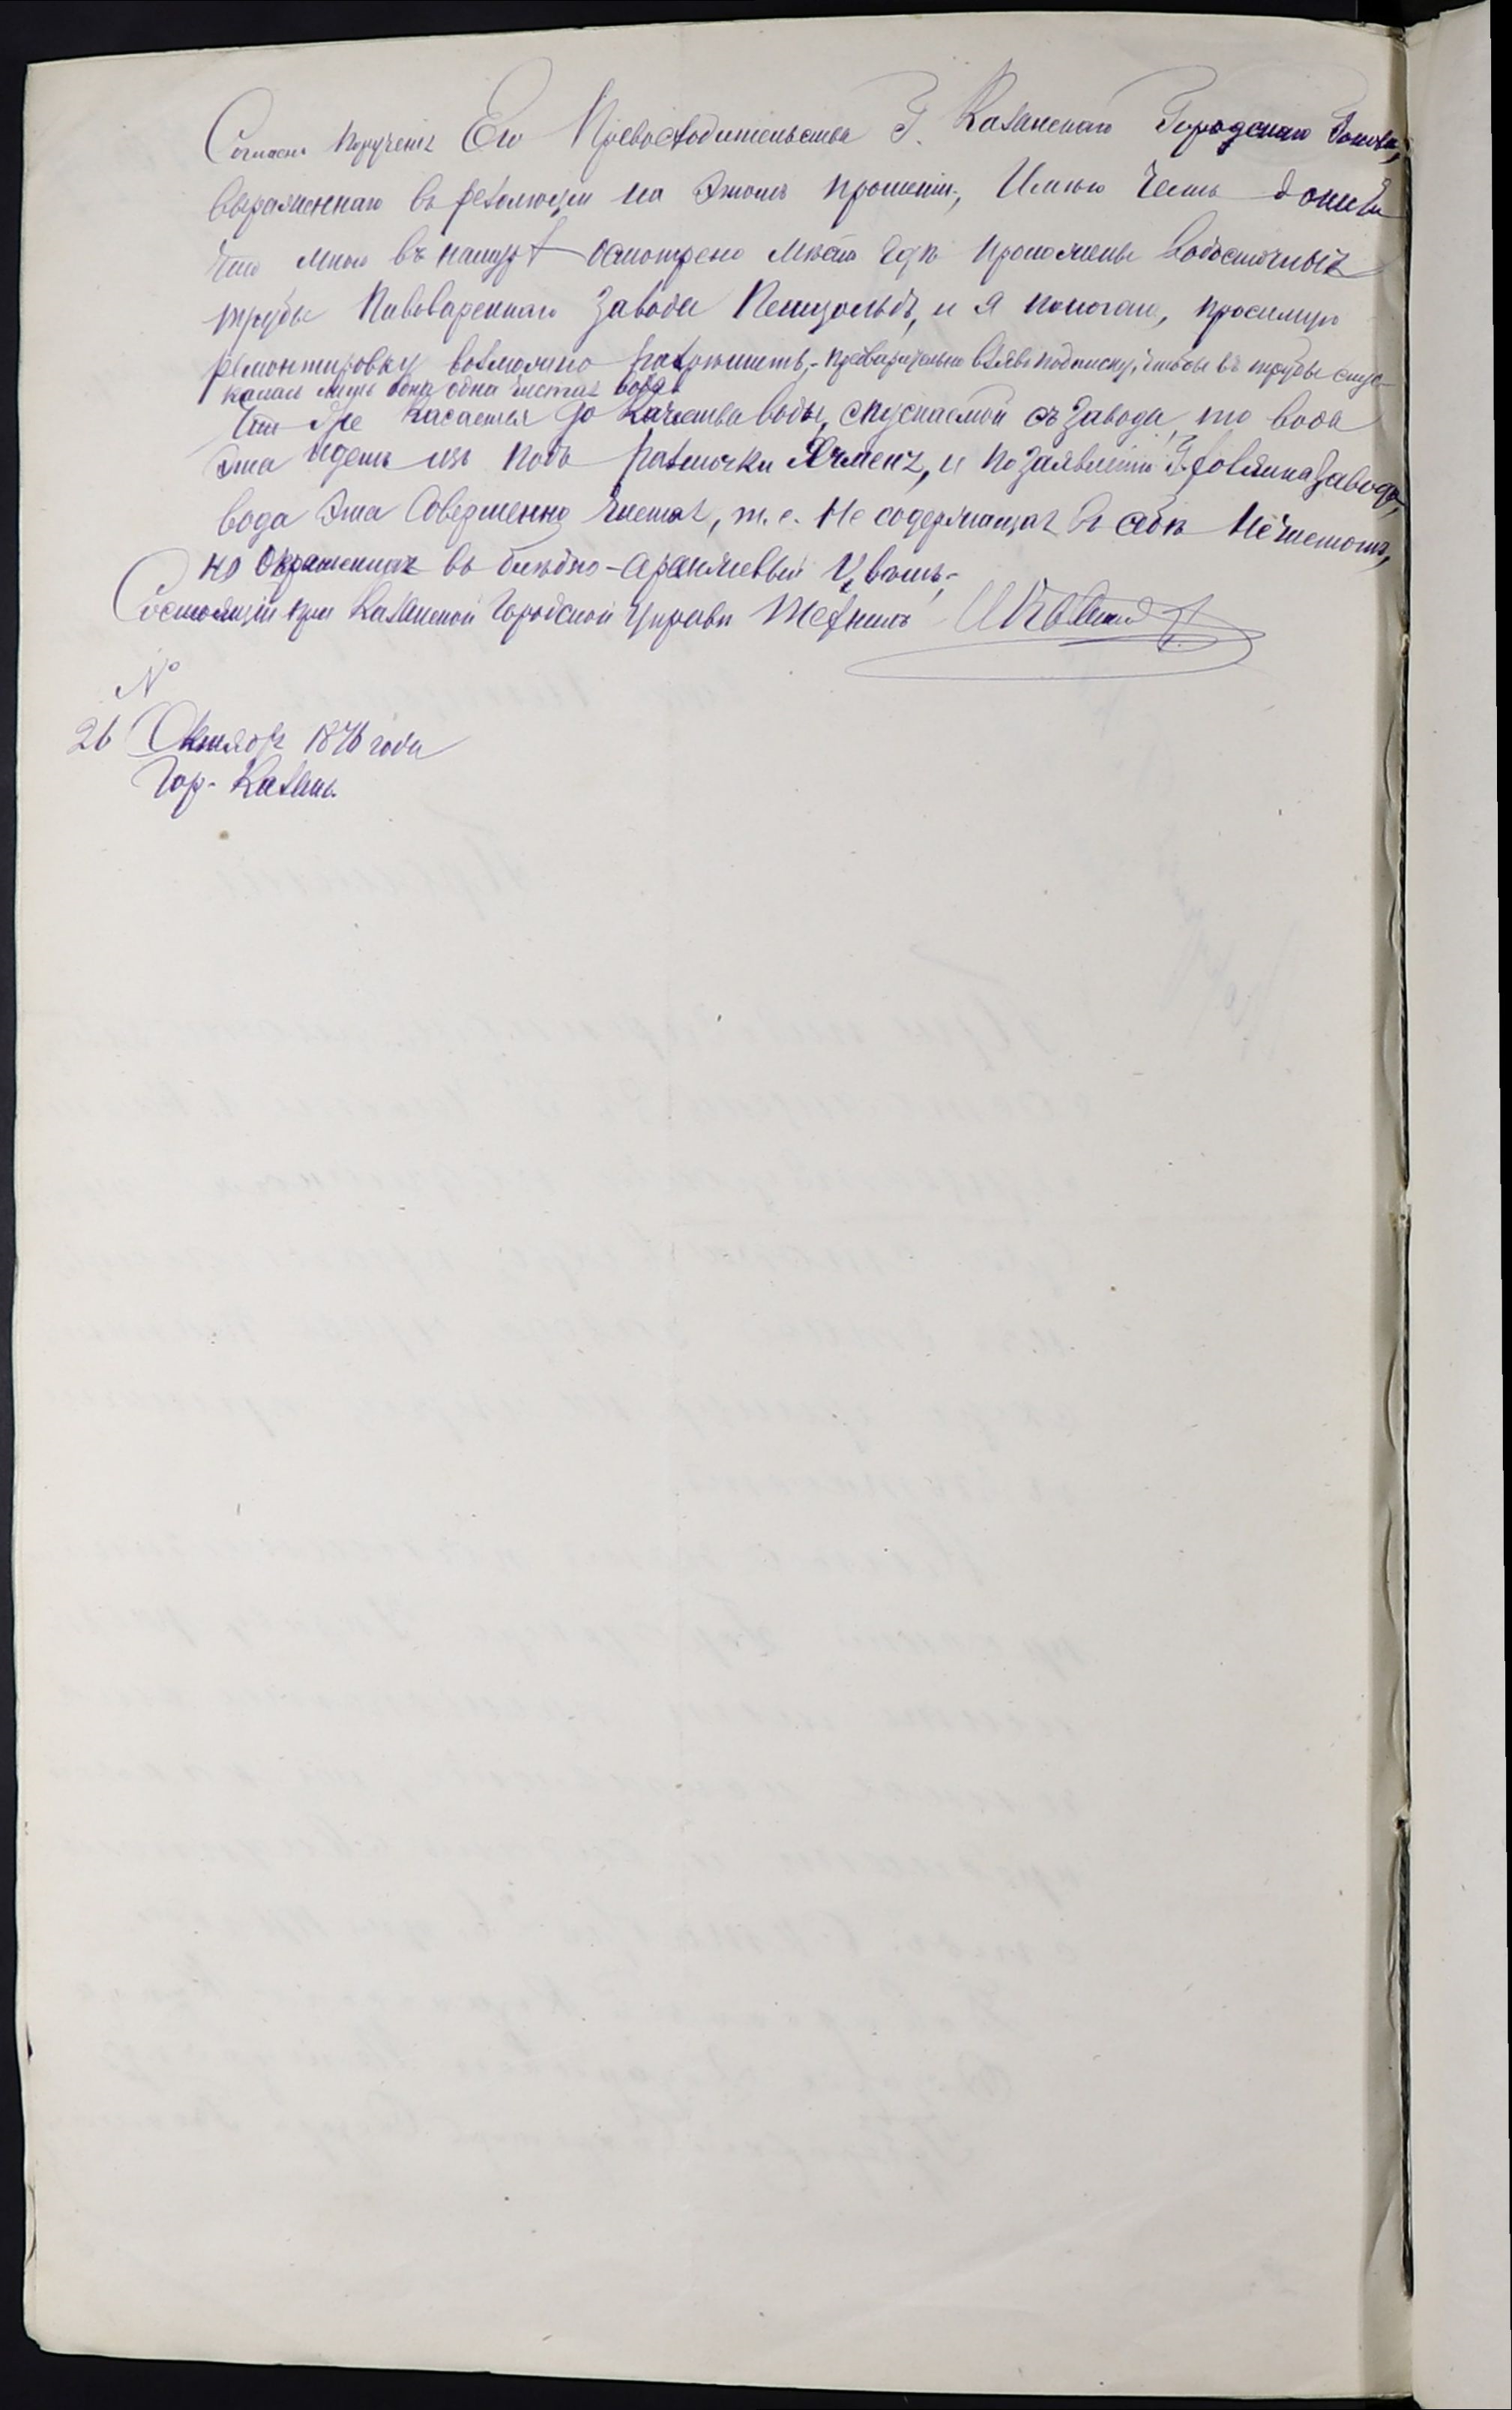 Согласно порученiя Его Превосходительства Г. Казанскаго Городскаго Головы,
выраженнаго въ резолюцiи на этомъ прошенiи, Имѣю честь донести
что мною въ натурѣ осмотрено мѣсто гдѣ проложены водосточныя
трубы Пивовареннаго Завода Петцольдъ, и я полагаю, просимую
ремонтировку возможно разрѣшить,- предварительно взявъ подписку, чтобы въ трубы спус-
калась лишь одна чистая вода
Что же касается до качества воды, спускаемой съ завода, то вода
эта идетъ изъ подъ размочки Ячменя, и по заявленiю Г. хозяина Завода,
вода эта совершенно чистая, т.е. не содержащая въ себѣ нечистотъ,
но окрашенная въ блѣдно-оранжевый цвѣтъ,-
Состоящiй при Казанской Городской Управѣ Техникъ
№
26 Октября 1876 года
Гор- Казань.